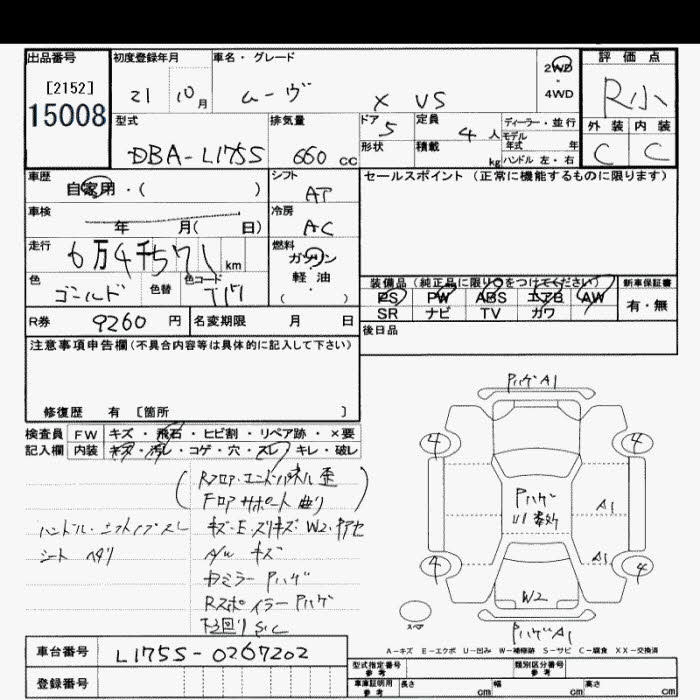 出品番号 初度登録年月 車名・グレード 評価点
[2152]
15008
21 10月 ムーヴ X VS 2WD R小
4WD
型式 排気量 ドア 定員 ディーラー・並行 外装 内装
DBA-L175S 660 cc 5 4人 モデル年式 年 C C
形状 積載 kg ハンドル 左・右
車歴 シフト セールスポイント (正常に機能するものに限ります)
自家用・( ) AT
車検 年 月( 日) 冷房 AC
走行 6万4千571 km 燃料 ガソリン
軽油
( )
色 色替 色コード
ゴールド
装備品 (純正品に限り○をつけてください) 新車保証書
PS PW ABS エアB AW 有・無
SR ナビ TV カワ
R券 9260 円 名変期限 月 日 後日品
注意事項申告欄(不具合内容等は具体的に記入して下さい)
修復歴 有 [箇所 ]
検査員 FW キズ・飛石・ヒビ割・リペア跡・×要
記入欄 内装 キズ・汚レ・コゲ・穴・スレ・キレ・破レ
(Rフロア・エンドパネル歪
Fロアサポート曲り)
キズ・E・スリキズ・W2・
シート ヘタリ A/W キズ
ミラーPハゲ
RスポイラーPハゲ
下回りS.C
PハゲA1
4 4
Pハゲ
A1
A1
4 4
W2
スペア
PハゲA1
A-キズ E-エクボ U-凹み W-補修跡 S-サビ C-腐食 XX-交換済
車台番号 L175S-0267202
登録番号
型式指定番号 参考 類別区分番号 参考
車庫証明用 参考 長さ cm 幅 cm 高さ cm